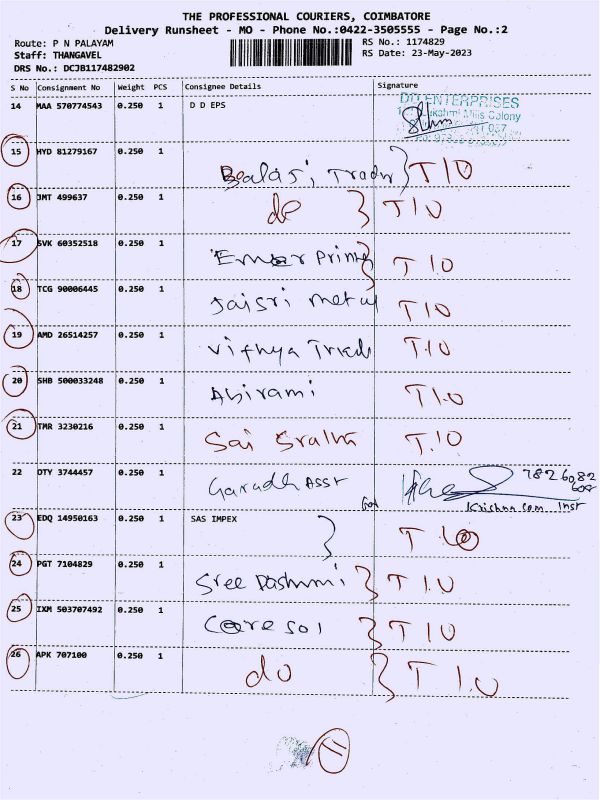 THE PROFESSIONAL COURIERS, COIMBATORE
Delivery Runsheet - MO - Phone No.:0422-3505555 - Page No.:2
Route: P N PALAYAM
Staff: THANGAVEL
DRS No.: DCJB117482902
RS No.: 1174829
RS Date: 23-May-2023
S No Consignment No Weight PCS Consignee Details Signature
14 MAA 570774543 0.250 1 D D EPS
DD ENTERPRISES
Mills Colony
15 HYD 81279167 0.250 1
Balaji T10
16 JMT 499637 0.250 1
do T10
17 SVK 60352518 0.250 1
T10
18 TCG 90006445 0.250 1
Jaisri metal T10
19 AMD 26514257 0.250 1
Vithya T10
20 SHB 500033248 0.250 1
Abirami T10
21 TMR 3230216 0.250 1
Sai T.10
22 DTY 3744457 0.250 1
Garudh Asst
Krishna com. Inst
23 EDQ 14950163 0.250 1 SAS IMPEX
T10
24 PGT 7104829 0.250 1
Sree T10
25 IXM 503707492 0.250 1
Caresol T10
26 APK 707100 0.250 1
do T10
11